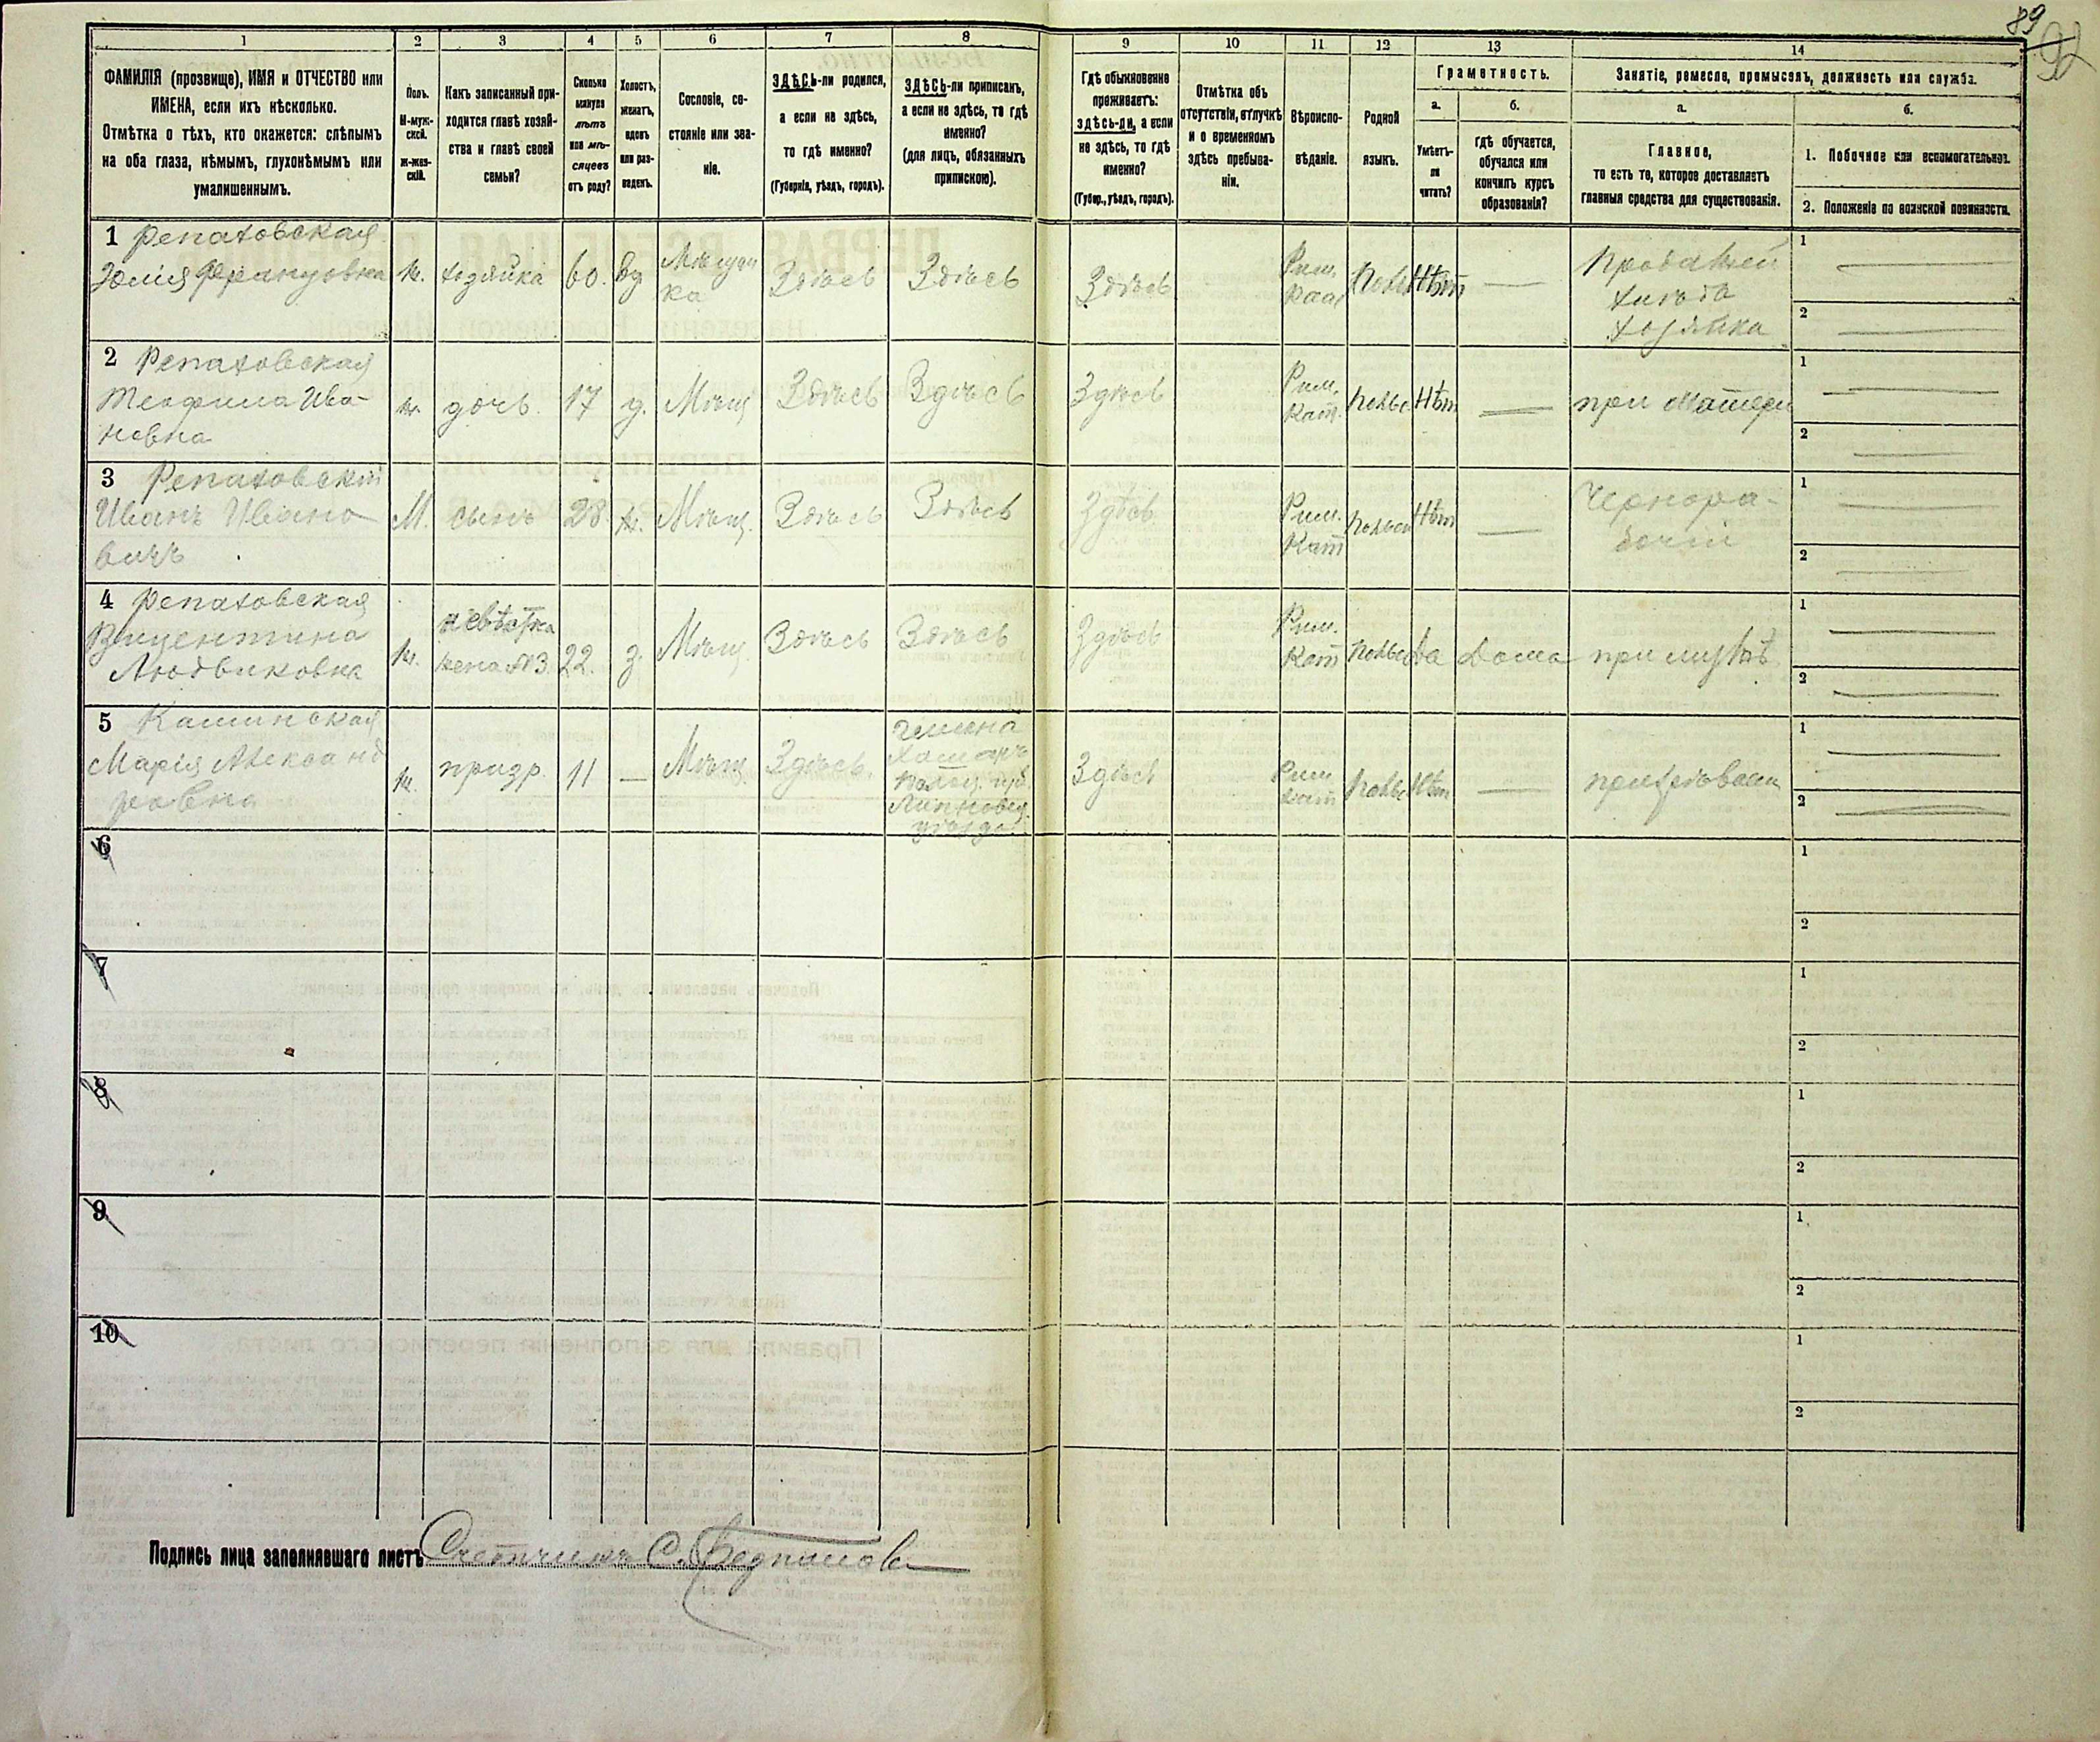 89
92
1 2 3 4 5 6 7 8 9 10 11 12 13 14
ФАМИЛІЯ (прозвище), ИМЯ и ОТЧЕСТВО или
ИМЕНА, если ихъ нѣсколько.
Отмѣтка о тѣхъ, кто окажется: слѣпымъ
на оба глаза, нѣмымъ, глухонѣмымъ или
умалишеннымъ.
Полъ.
М-муж-
ской.
Ж-жен-
скій.
Какъ записанный при-
ходится главѣ хозяй-
ства и главѣ своей
семьи?
Сколько
минуло
лѣтъ
или мѣ-
сяцевъ
отъ роду?
Холостъ,
женатъ,
вдовъ
или раз-
веденъ.
Сословіе, со-
стояніе или зва-
ніе.
ЗДѢСЬ-ли родился,
а если не здѣсь,
то гдѣ именно?
(Губернія, уѣздъ, городъ).
ЗДѢСЬ-ли приписанъ,
а если не здѣсь, то гдѣ
именно?
(для лицъ, обязанныхъ
припискою).
Гдѣ обыкновенно
проживаетъ:
здѣсь-ли, а если
не здѣсь, то гдѣ
именно?
(Губер., уѣздъ, городъ).
Отмѣтка объ
отсутствіи, отлучкѣ
и о временномъ
здѣсь пребыва-
ніи.
Вѣроиспо-
вѣданіе.
Родной
языкъ.
Грамотность.
а.
Умѣетъ-
ли
читать?
б.
гдѣ обучается,
обучался или
кончилъ курсъ
образованія?
Занятіе, ремесло, промыселъ, должность или служба.
а.
Главное,
то есть то, которое доставляетъ
главныя средства для существованія.
б.
1. Побочное или вспомогательное.
2. Положеніе по воинской повинности.
1 Репаховская
Юлія Францовна ж. хозяйка 60. вд Мѣщан
ка Здѣсь Здѣсь Здѣсь Рим. Нѣт —
хлѣба
хозяйка
1 —
2 —
2 Репаховская
Теофила Ива-
новна
ж. дочь. 17 д. Мѣщ Здѣсь Здѣсь Здѣсь Рим.
Кат. Польс Нѣт — при Матери
1 —
2 —
3 Репаховскій
Иванъ Ивано
вичъ
М. сынъ 28. ж. Мѣщ. Здѣсь Здѣсь Здѣсь Рим.
Кат Польск Нѣт — Чернора-
бочій
1 —
2 —
4 Репаховская
Вицентина
Людвиковна
ж. невѣстка
жена №3. 22. з. Мѣщ Здѣсь Здѣсь Здѣсь Рим.
Кат Польс Да Дома при мужѣ
1 —
2 —
5 Каминская
Марія Александ
ровна
ж. призр. 11 — Мѣщ. Здѣсь.
уѣзда
Здѣсь Рим
Кат Польс Нѣт —
1 —
2 —
6
1
2
7
1
2
8
1
2
9
1
2
10
1
2
Подпись лица заполнявшаго листъ Счетчикъ С.